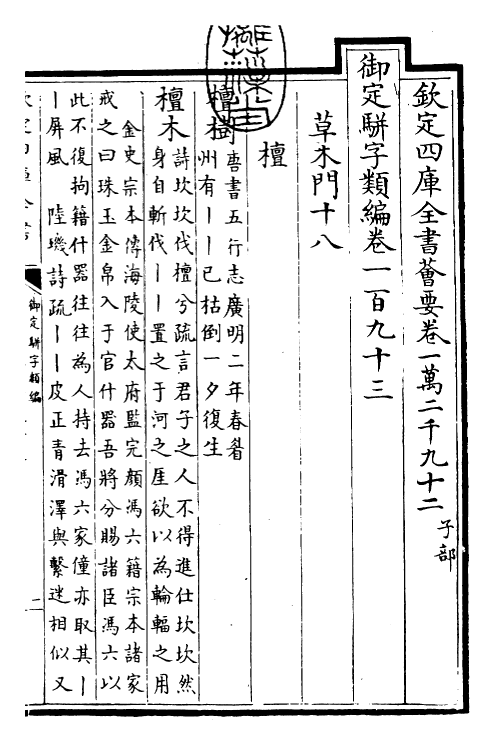 欽定四庫全書薈要卷一萬二千九十二 子部
御定駢字類編卷一百九十三
草木門十八
檀
檀樹 唐書五行志廣明二年春眢
州有丨丨已枯倒一夕復生
檀木 詩坎坎伐檀兮疏言君子之人不得進仕坎坎然
身自斬伐丨丨置之于河之厓欲以為輪輻之用
金史宗本傳海陵使太府監完顏馮六籍宗本諸家
戒之曰珠玉金帛入于官什器吾將分賜諸臣馮六以
此不復拘籍什器往往為人持去馮六家僮亦取其丨
丨屏風 陸璣詩疏丨丨皮正青滑澤與繫迷相似又
御定駢字類編